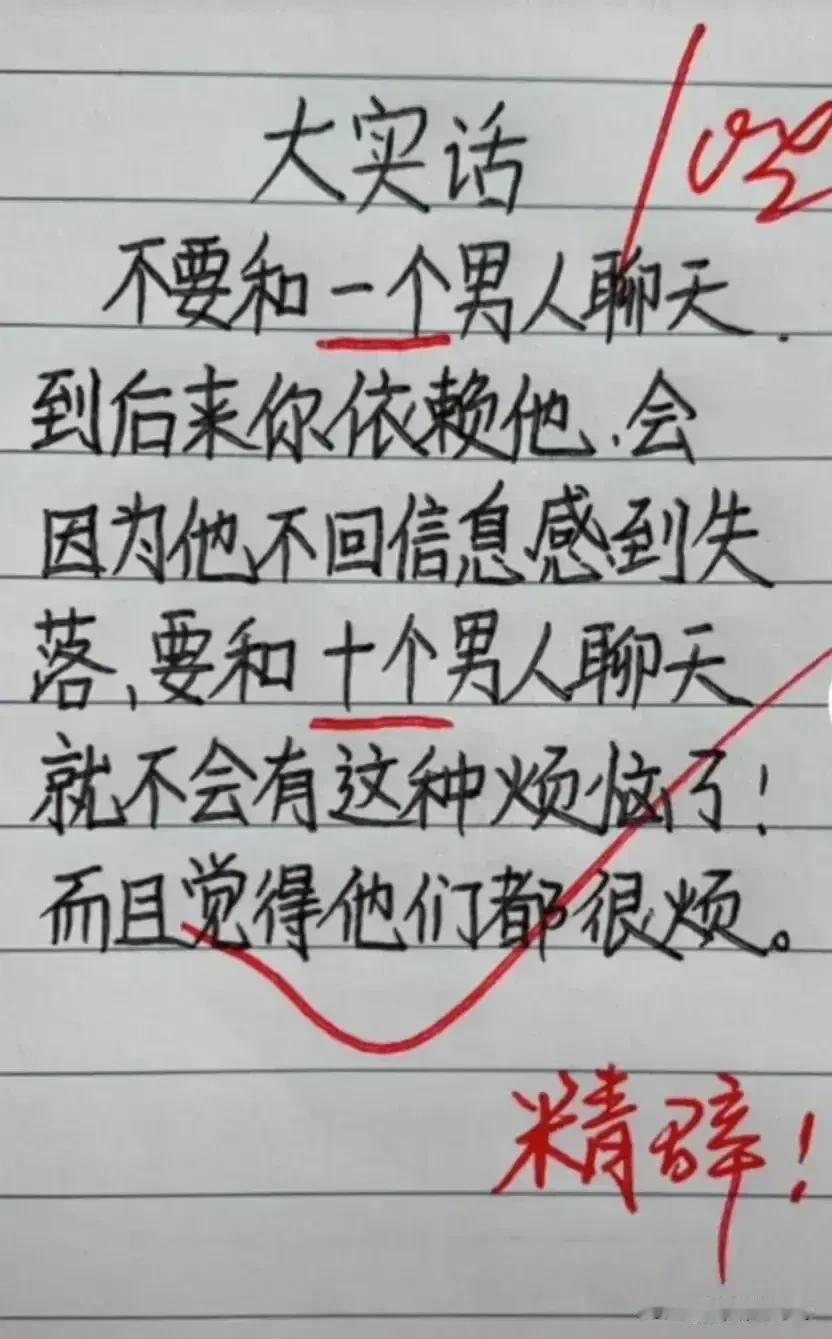 大实话
不要和一个男人聊天.
到后来你依赖他、会
因为他不回信息感到失
落,要和十个男人聊天
就不会有这种烦恼了!
而且觉得他们都很烦。
精辟!